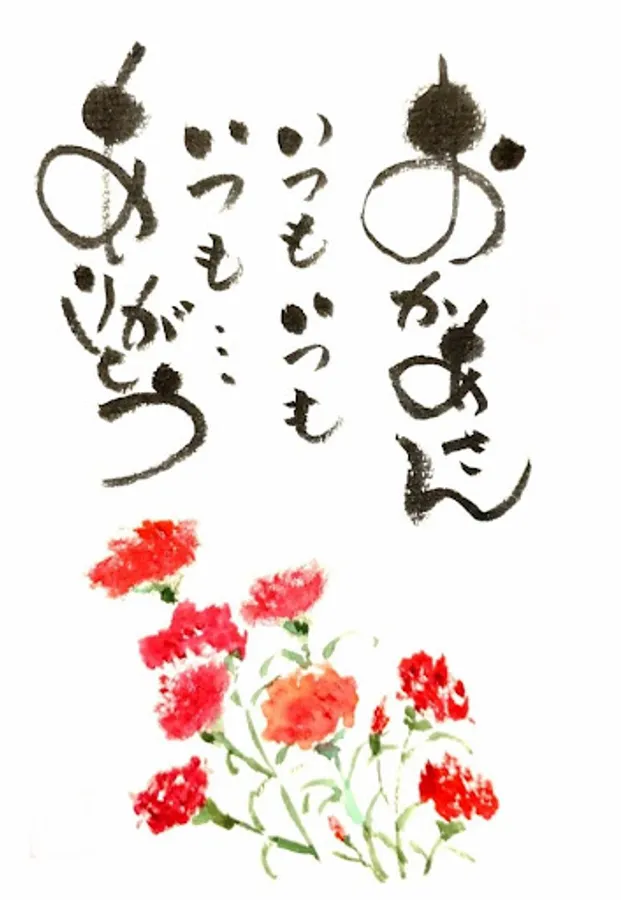 おかあさん
いつもいつも
いつも…
ありがとう